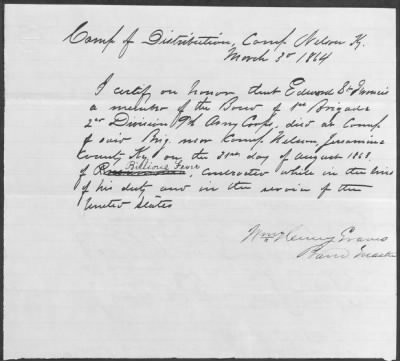 Camp of Distribution, Camp Nelson Ky.
March 3d 1864
I certify on honor that Edward St. Francis
a member of the Band of 1st Brigade
2nd Division 9th Army Corps, died at Camp
of said Brig. near Camp Nelson, Jessamine
County Ky, on the 31st day of August 1863.
of Billious Fever, contracted while in the line
of his duty and in the service of the
United States
Wm Henry Evans
Band Master